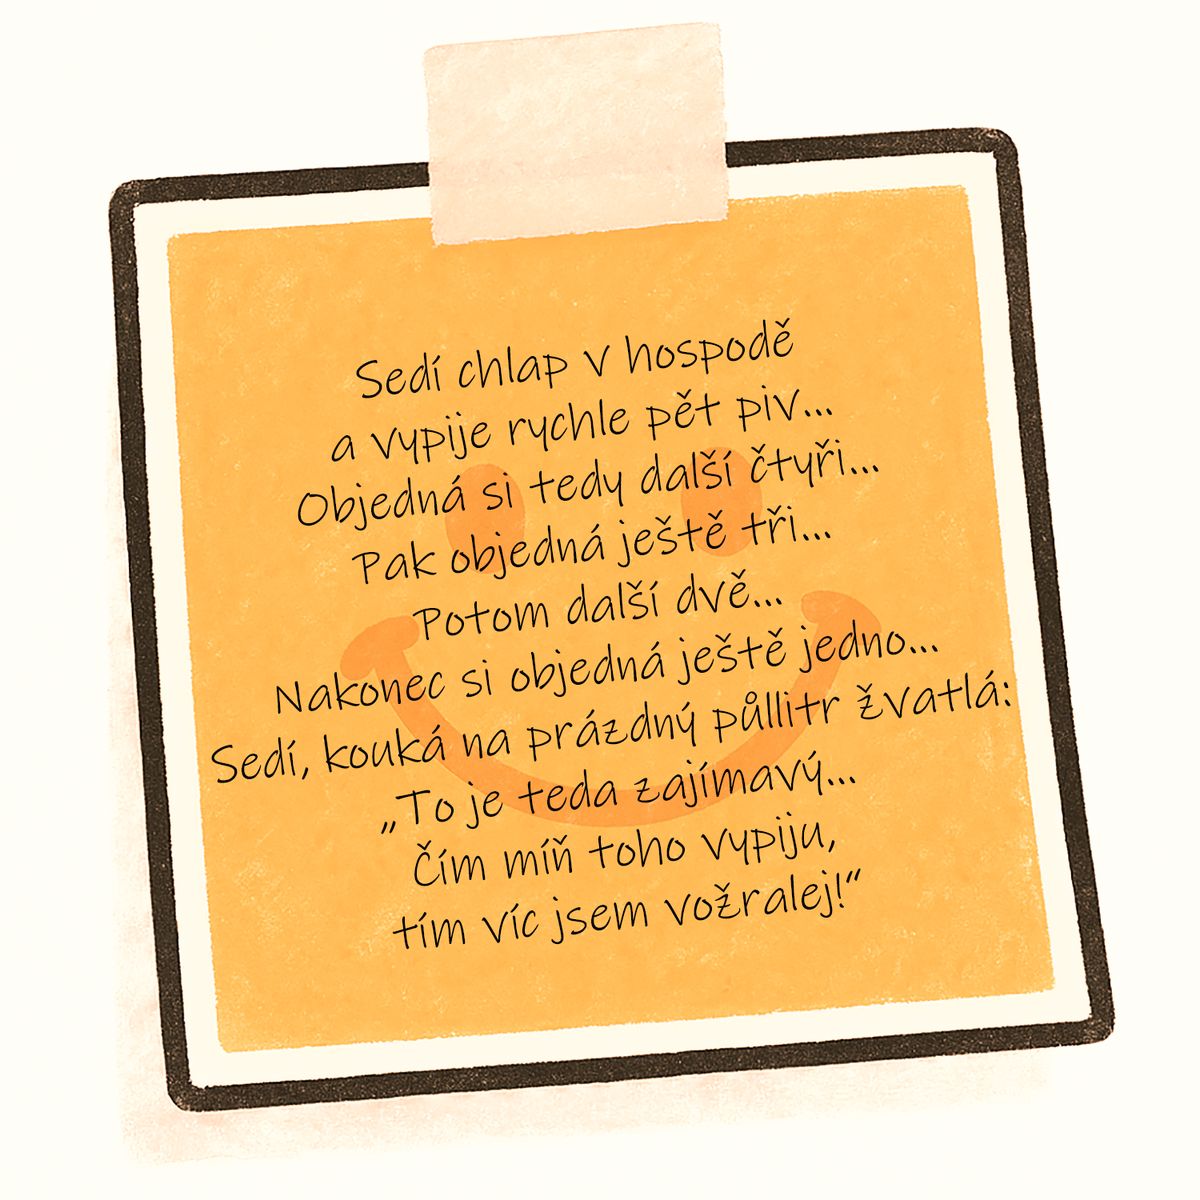 Sedí chlap v hospodě
a vypije rychle pět piv...
Objedná si tedy další čtyři...
Pak objedná ještě tři...
Potom další dvě...
Nakonec si objedná ještě jedno...
Sedí, kouká na prázdný půllitr žvatlá:
„To je teda zajímavý...
Čím míň toho vypiju,
tím víc jsem vožralej!“